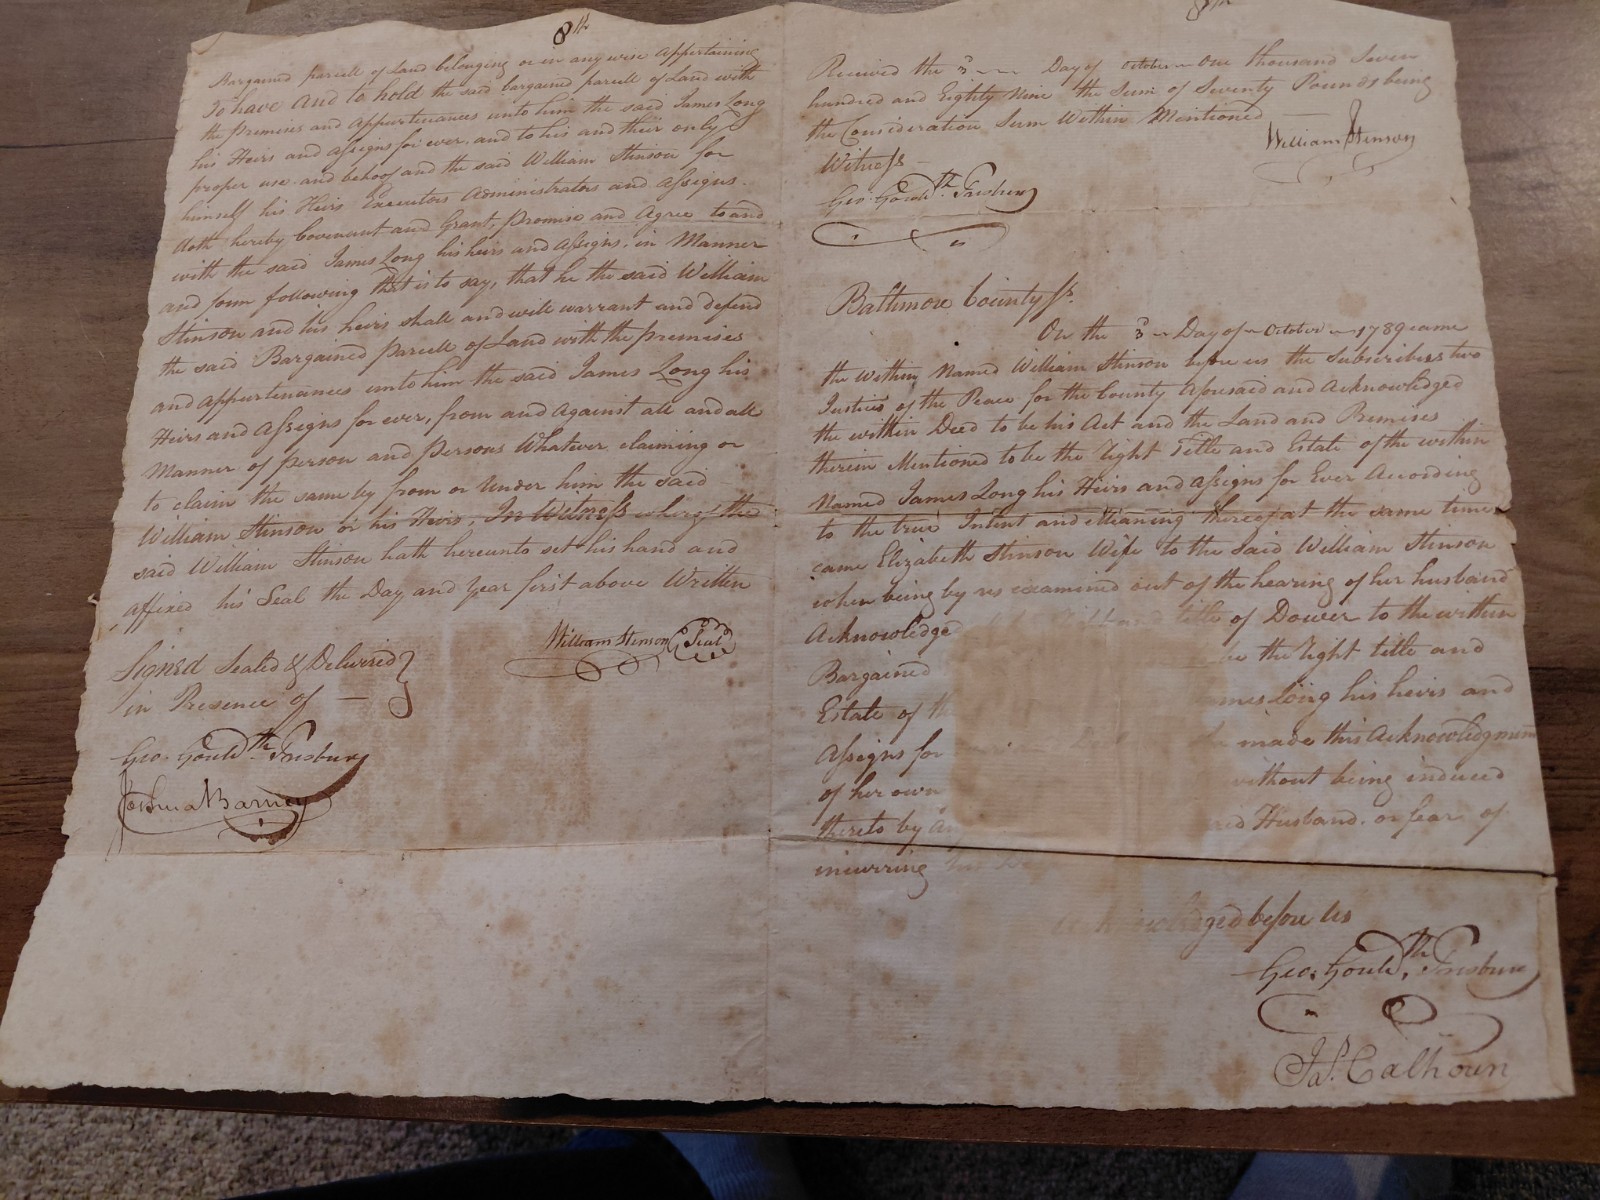 8th
Bargained parcell of Land belonging or in any wise Appertaining
To have and to hold the said bargained parcell of Land with
the premises and appurtenances unto him the said James Long
his Heirs and assigns for ever, and to his and their only
proper use and behoof and the said William Stinson for
himself his Heirs Executors Administrators and assigns.
doth hereby Covenant and Grant, promise and Agree to and
with the said James Long his heirs and assigns, in Manner
and form following that is to say, that he the said William
Stinson and his heirs shall and will warrant and defend
the said Bargained parcell of Land with the premises
and appurtenances unto him the said James Long his
Heirs and assigns for ever, from and against all and all
Manner of person and persons Whatever claiming or
to claim the same by from or under him the said
William Stinson or his Heirs, In Witness whereof the
said William Stinson hath hereunto set his hand and
affixed his Seal the Day and Year first above Written
William Stinson Seal
Signed Sealed & Delivered
in Presence of —
Geo. Gouldth. Presbury
Joshua Barney
8th
Received the 3 Day of October One thousand Seven
hundred and Eighty Nine the Sum of Seventy Pounds being
the Consideration Sum Within Mentioned
William Stinson
Witness
Geo. Gouldth. Presbury
Baltimore County Ss.
On the 3 Day of October 1789 came
the within Named William Stinson before us the Subscribers two
Justices of the Peace for the County Aforesaid and Acknowledged
the within Deed to be his Act and the Land and Premises
therein Mentioned to be the Right Title and Estate of the within
Named James Long his Heirs and assigns for Ever According
to the true Intent and Meaning thereof at the same time
came Elizabeth Stinson Wife to the Said William Stinson
when being by us examined out of the hearing of her husband
Acknowledge title of Dower to the within
Bargained the Right title and
Estate of Long his heirs and
Assigns for made this Acknowledgment
of her own without being induced
thereto by Husband. or fear of
incurring
Acknowledged before Us
Geo. Gouldth. Presbury
Jas. Calhoun